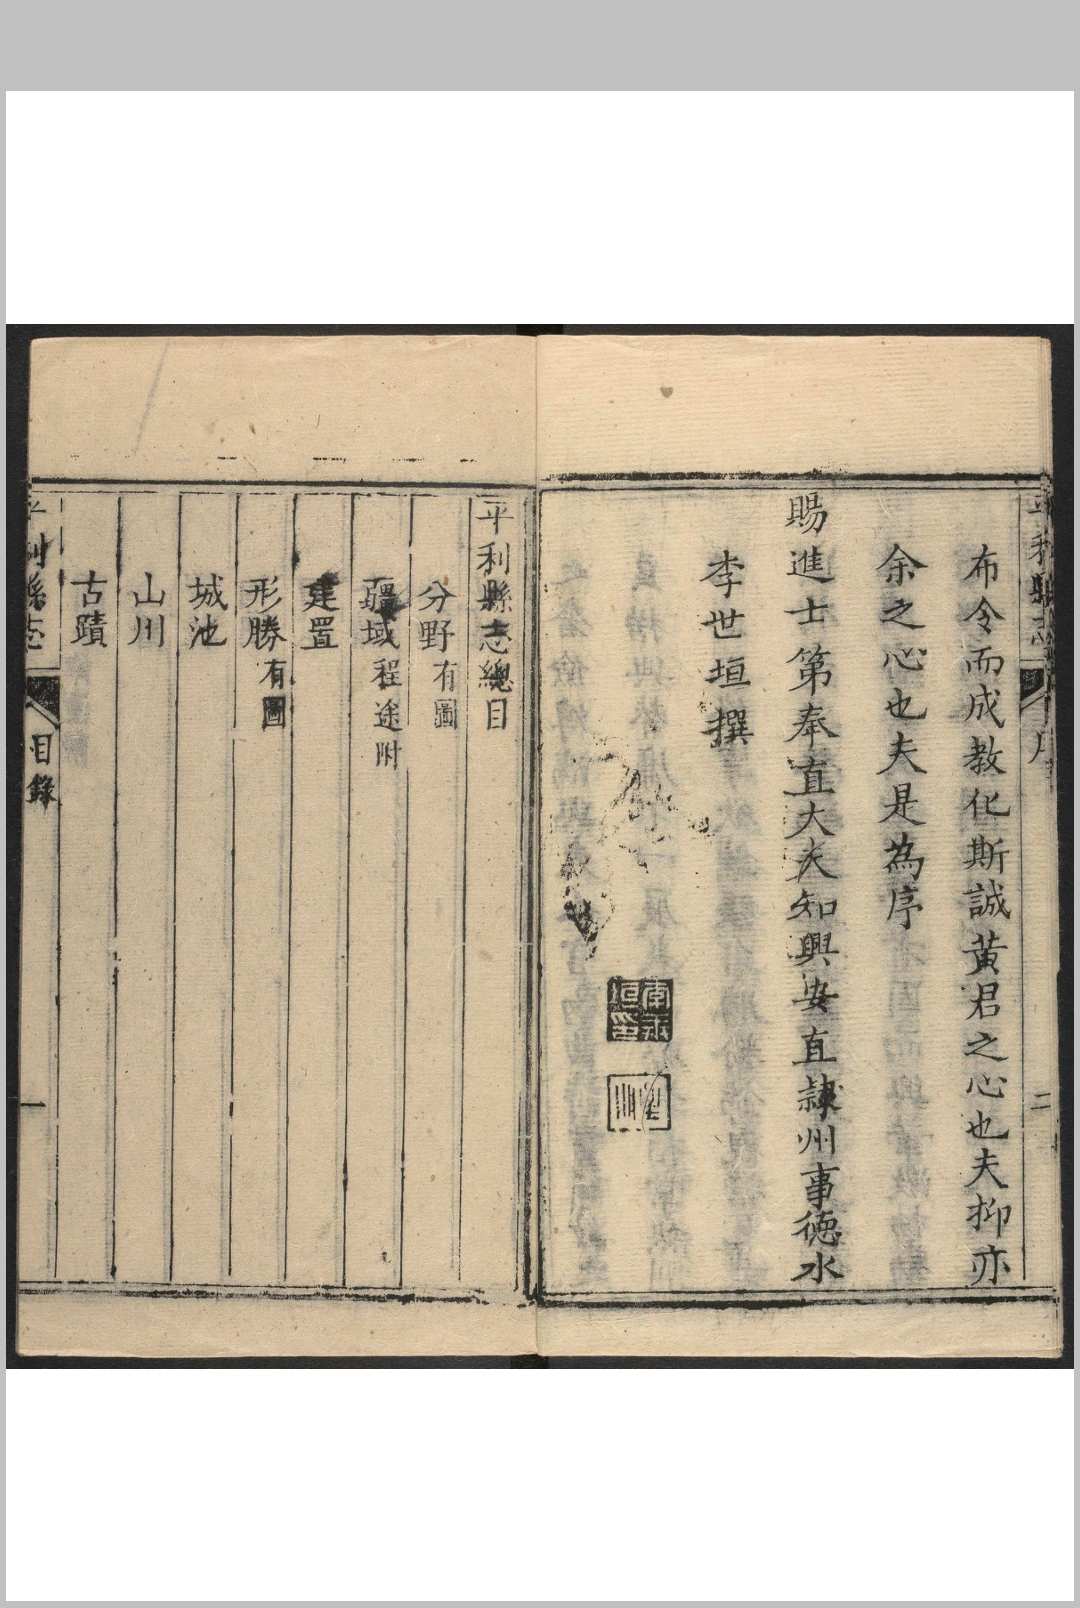 布令而成教化斯誠黃君之心也夫抑亦
余之心也夫是為序
賜進士第奉直大夫知興安直隸州事德水
李世垣撰
平利縣志總目
分野有圖
疆域程途附
建置
形勝有圖
城池
山川
古蹟
平利縣志
目錄
一